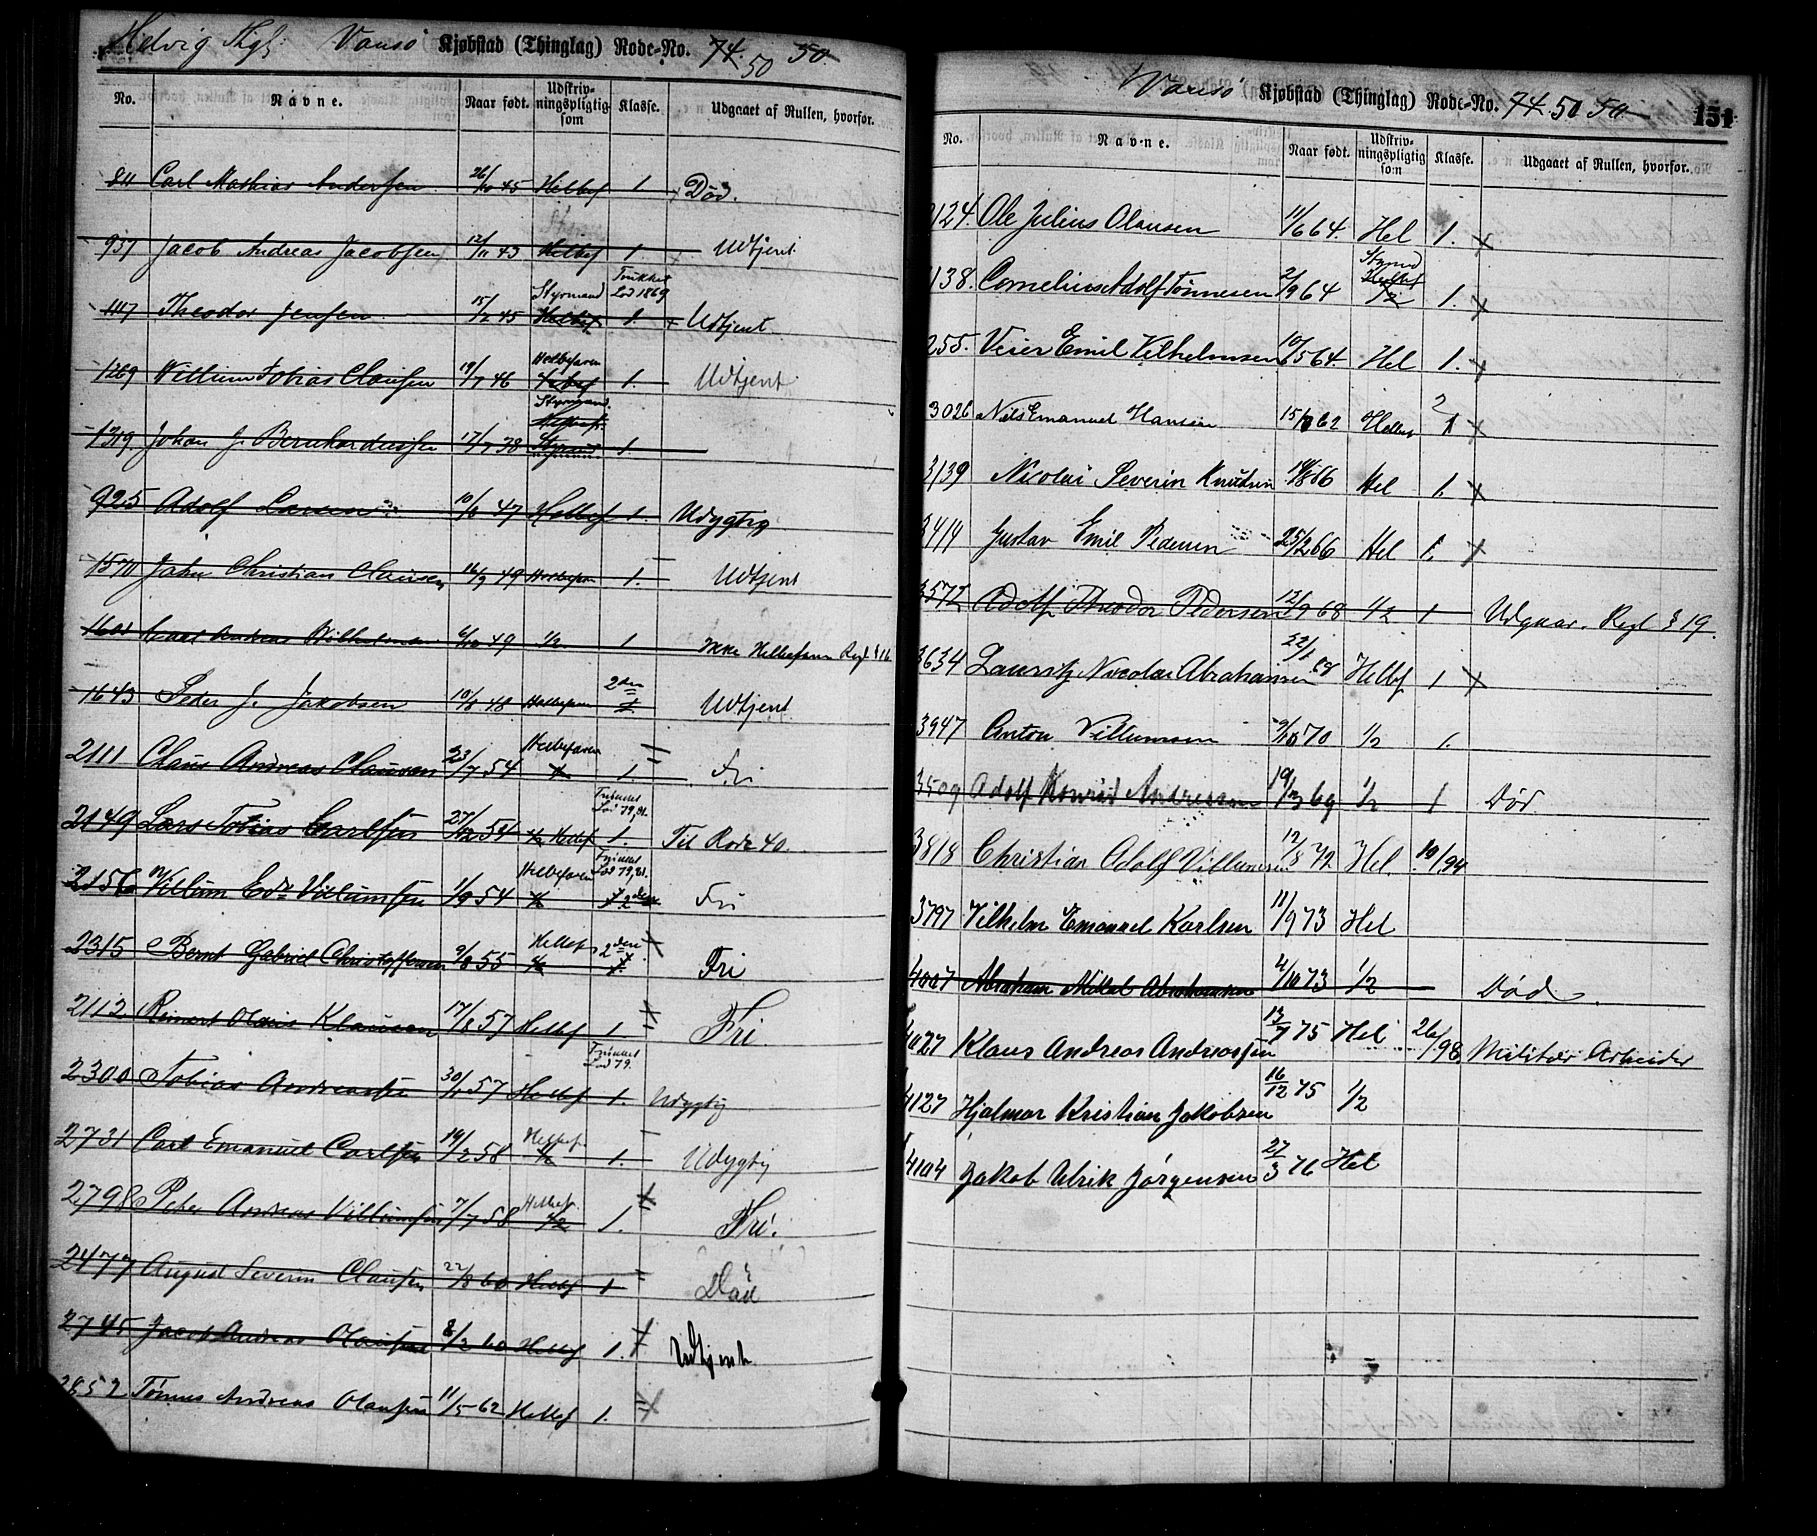 Helvig Vansø Kjøbstad (Thinglag) Rode-No. 74. 50 50.
No. Navne. Naar født. Udskrivningspligtig som Klasse. Udgaaet af Rullen, hvorfor.
811 Carl Mathias Andersen 26/10 45 Helbef 1 Død.
937 Jacob Andreas Jacobsen 12/11 43 Helbef 1 Udtjent
Trukket Lod 1869
Styrmand
1117 Theodor Jensen 15/2 45 Helbef 1. x Udtjent.
Helbefaren
1269 Villum Tobias Clausen 19/7 46 1. Udtjent
Styrmand
1319. Johan J. Bernhardussen 17/7 38 Styrmd 1.
925 Adolf Larsen 10/6 47 Helbef 1. Udygtig
1570 John Christian Clausen 14/9 49 Helbefaren 1. Udtjent
1601 Carl Andreas Wilhelmsen 6/10 49 1/2 1 Ikke Helbefaren Regl § 16
2den
1643 Peder J. Jakobsen 10/8 48 Helbefaren 1. Udtjent.
Helbefaren
2111 Claus Andreas Clausen 23/7 54 1. Fri
Trukket Lod 79,81.
2149 Lars Tobias Carlsen 27/12 54 1/2 Helbef 1. Til Rode 40.
Helbefaren Trukket Lod 79,81.
2156 Villum Edv. Villumsen 1/9 54 1/2 1 2den Fri
Helbef 2den x
2315 Bernt Gabriel Christoffersen 9/8 55 1/2 1. Fri
2112 Reinert Olaus Klausen 17/8 57 Helbef 1 Fri.
Trukket Lod 79.
2300 Tobias Andreassen 30/1 57 Helbef 1. Udygtig
Helbef.
2731 Carl Emanuel Carlsen 19/2 58 1/2 1. Udygtig
Helbef.
2798 Peter Andreas Villumsen 7/7 58 1/2 1. Fri.
2477 August Severin Clausen 22/8 60 Helbef 1 Død
2745 Jacob Andreas Olausen 8/2 60 Helbef 1. Udtjent
2852 Tønnes Andreas Olausen 11/5 62 Helbef 1. x
Vansø Kjøbstad (Thinglag) Rode-No. 74. 50 50. 151
No. Navne. Naar født. Udskrivningspligtig som Klasse. Udgaaet af Rullen, hvorfor.
124. Ole Julius Olausen 11/6 64. Hel 1. x
Styrmd
138. Cornelius Adolf Tønnesen 2/9 64 1/2 1. x
255. Veier Emil Vilhelmsen 10/5 64. Hel 1. x
2
3026 Nils Emanuel Hansen 62 Helbef 1 x
3139 Nicolai Severin Knutsen 66 Hel 1. x
3414 Gustav Emil Pedersen 25/2 66 Hel 1. x
3572 Adolf Theodor Pedersen 12/9 68 1/2 1 Udgaar. Regl § 19.
3634 Lauritz Nicolai Abrahamsen 22/1 Helbf 1 x
3947 Anton Villumsen 70 1/2 1.
3509 Adolf Konrad Andreassen 69 1/2 1 Død
3818 Christian Adolf Villumsen 12/8 72 Hel. 19/94
3797 Vilhelm Emanuel Karlsen 11/9 73 Hel
4007 Abraham Mikal Abrahamsen 4/10 73 1/2 Død.
4027 Klaus Andreas Andreassen 13/7 75 Hel 26/98 Militær Arbeider
4127 Hjalmar Kristian Jakobsen 16/12 75 1/2
4104 Jakob Ulrik Jørgensen 27/3 76 Hel